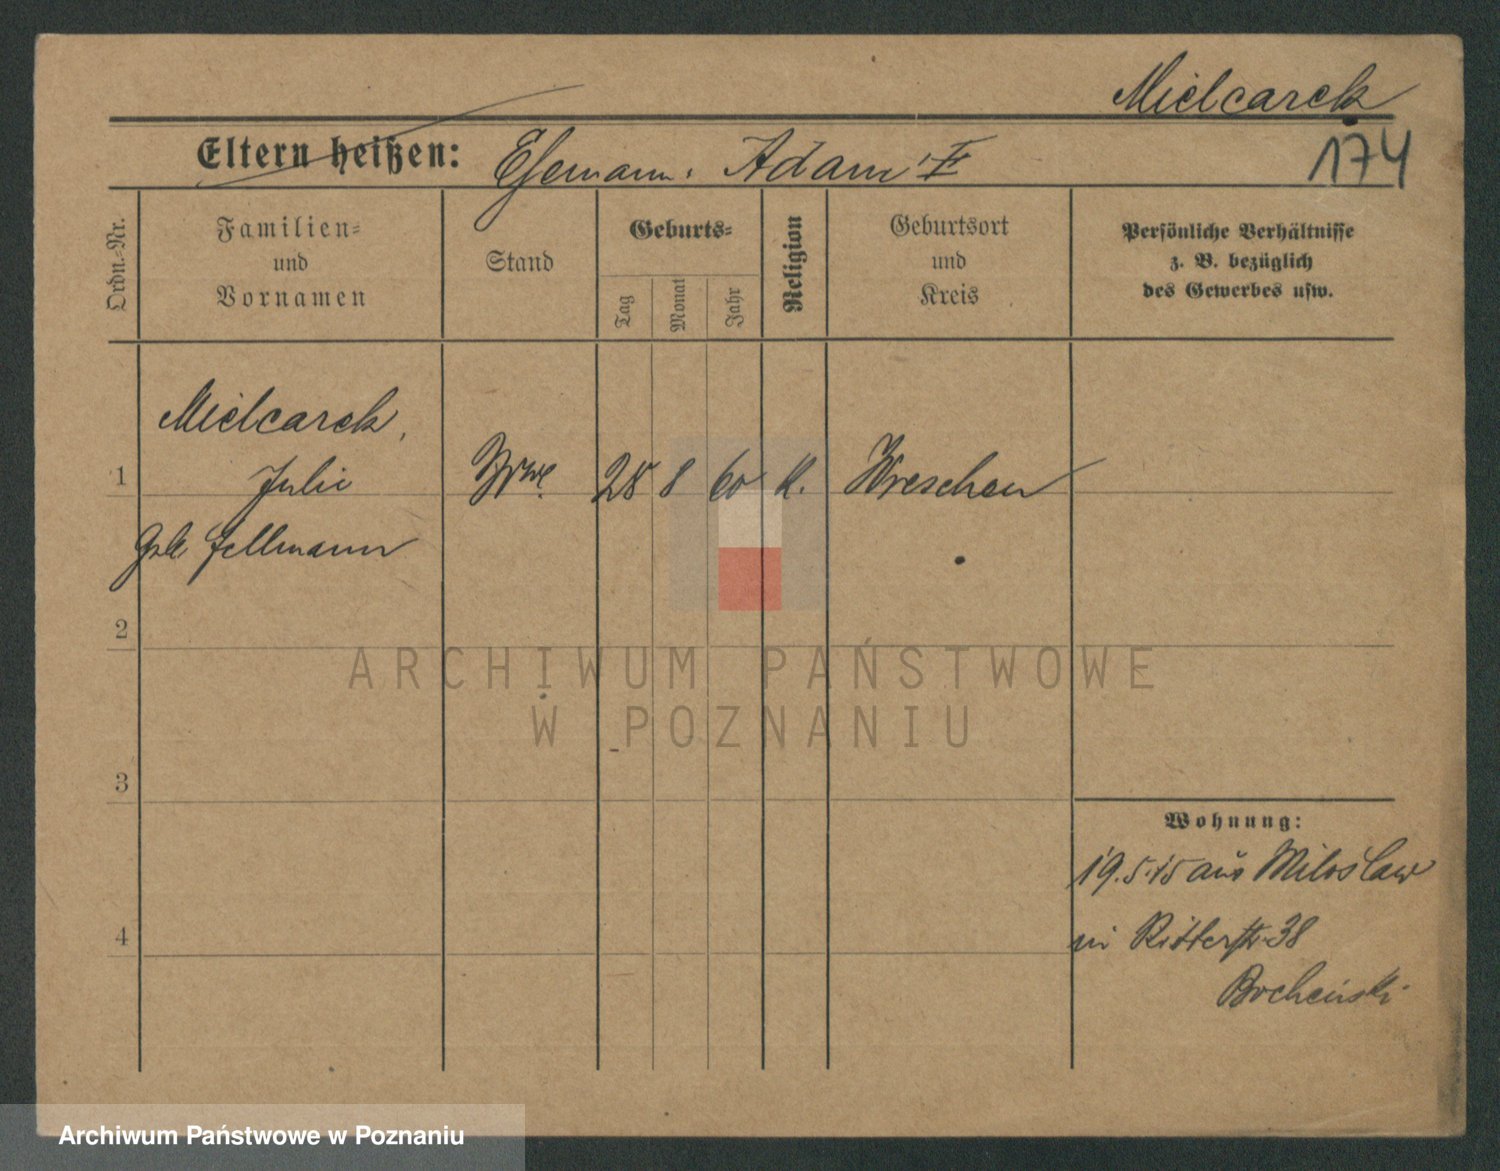 Mielcarek
174
Eltern heißen: Ehemann: Adam
Ordn.-Nr.
Familien-
und
Vornamen
Stand
Geburts-
Tag
Monat
Jahr
Religion
Geburtsort
und
Kreis
Persönliche Verhältnisse
z. B. bezüglich
des Gewerbes usw.
Mielcarek,
1 Julie Wwe. 28 8 60 K. Wreschen
geb.
2
ARCHIWUM PAŃSTWOWE
W POZNANIU
3
Wohnung:
19.5.15 aus Miloslaw
4
in Ritterstr. 38
Bocheński
Archiwum Państwowe w Poznaniu